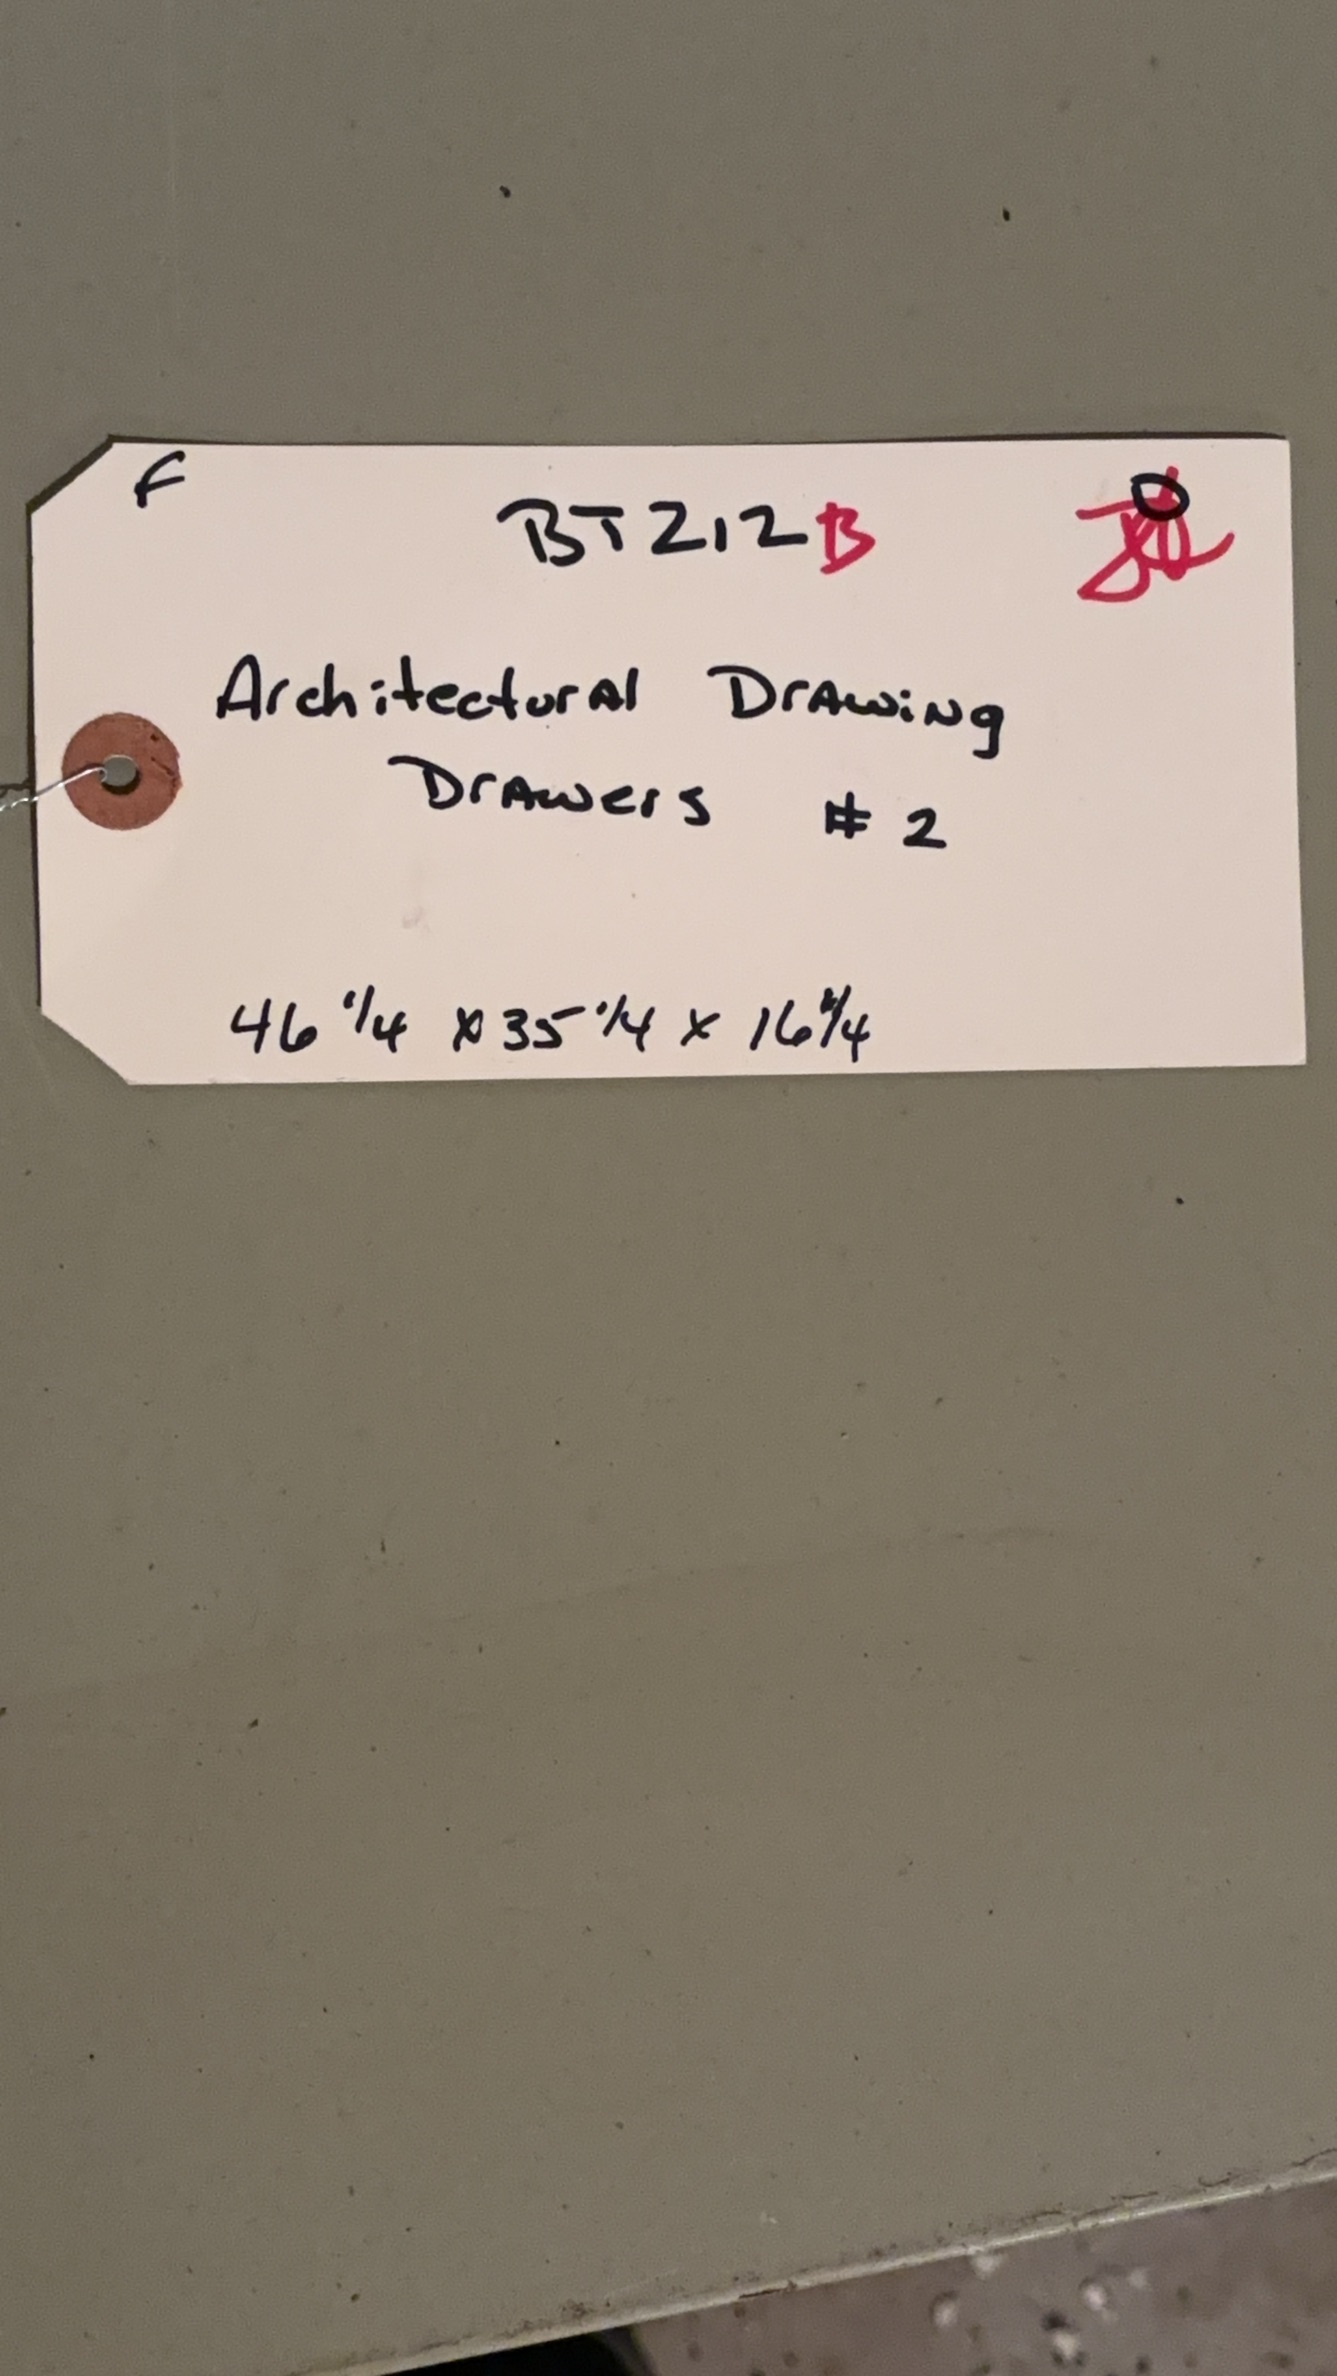 F
BT212B
Architectural Drawing
Drawers # 2
46 1/4 x 35 1/4 x 16 1/4